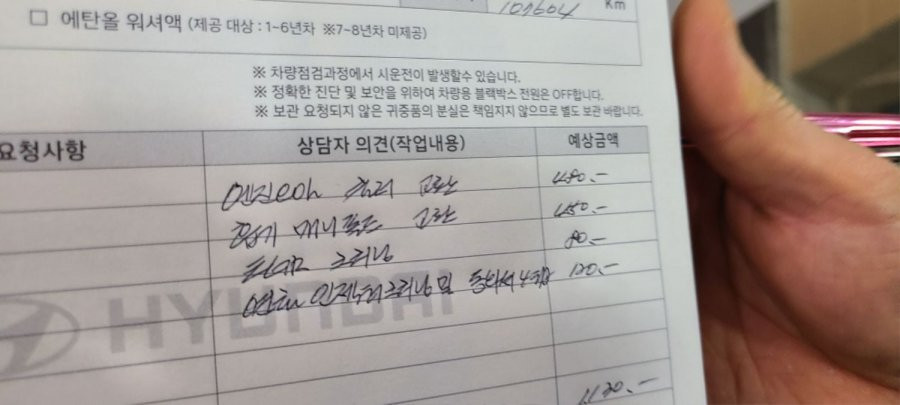 109604 Km
□ 에탄올 워셔액 (제공 대상 : 1~6년차 ※7~8년차 미제공)
※ 차량점검과정에서 시운전이 발생할수 있습니다.
※ 정확한 진단 및 보안을 위하여 차량용 블랙박스 전원은 OFF합니다.
※ 보관 요청되지 않은 귀중품의 분실은 책임지지 않으므로 별도 보관 바랍니다.
요청사항 상담자 의견(작업내용) 예상금액
엔진 교환 480.-
흡기 매니폴드 교환 450.-
크리닝 80.-
연료 인젝터크리닝 및 120.-
HYUNDAI
1,130.-